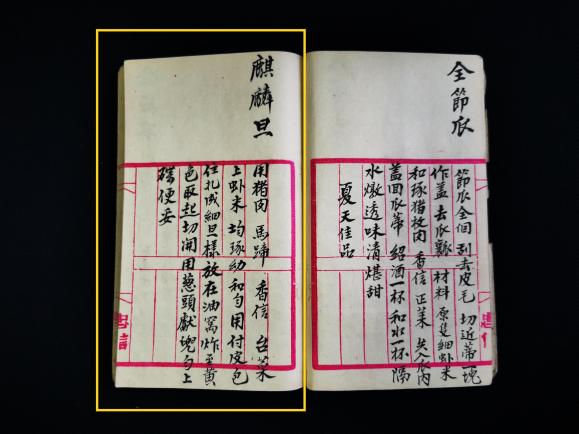 全節瓜
節瓜全個 刮去皮毛 切近蒂一塊
作盖 去瓜瓤 材料 原隻細虾米
和琢猪枚肉 香信 正菜 共入瓜內
盖回瓜蒂 紹酒一杯 和水一杯 隔
水燉透味清堪甜
夏天佳品
麒麟旦
用猪肉 馬蹄 香信 台菜
上虾米 均琢幼 和勻 用付皮包
住扎成細旦樣 放在油窩炸至黄
色取起 切開 用葱頭獻 兜勻上
碟便妥
忠信